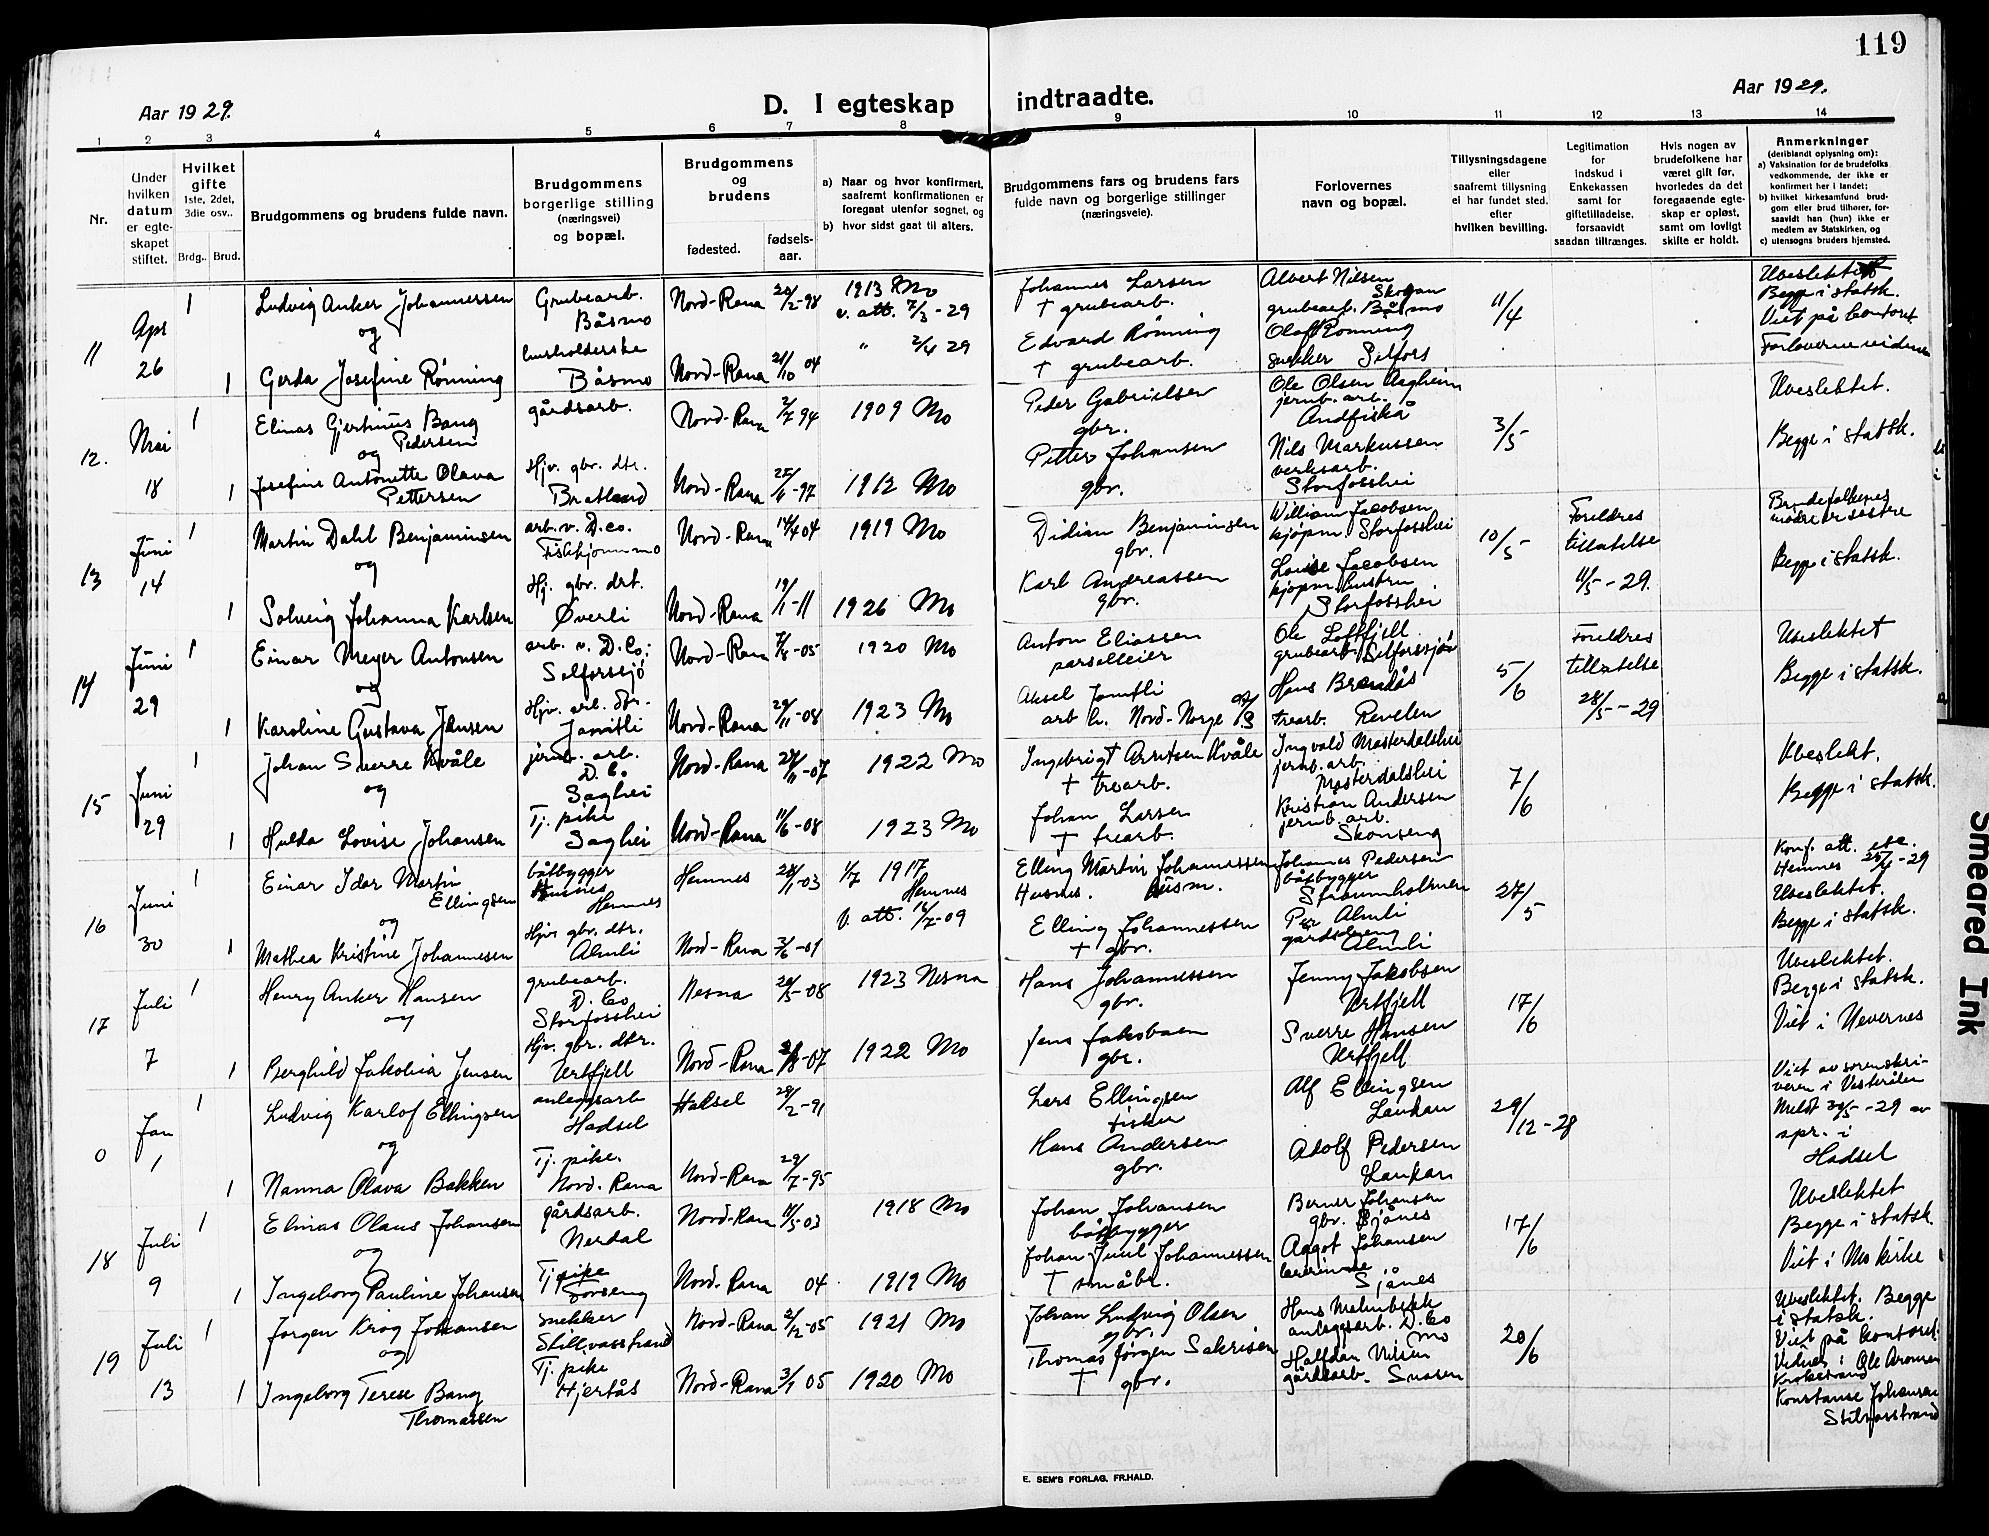 119
Aar 1929.
D. I egteskap indtraadte.
Aar 1929.
1 2 3 4 5 6 7 8 9 10 11 12 13 14
Nr.
Under hvilken datum er egteskapet stiftet.
Hvilket gifte 1ste, 2det, 3die osv..
Brdg.. Brud.
Brudgommens og brudens fulde navn.
Brudgommens borgerlige stilling (næringsvei) og bopæl.
Brudgommens og brudens
fødested. fødselsaar.
a) Naar og hvor konfirmert, saafremt konfirmationen er foregaat utenfor sognet, og
b) hvor sidst gaat til alters.
Brudgommens fars og brudens fars fulde navn og borgerlige stillinger (næringsveie).
Forlovernes navn og bopæl.
Tillysningsdagene eller saafremt tillysning ei har fundet sted. efter hvilken bevilling.
Legitimation for indskud i Enkekassen samt for giftetilladelse, forsaavidt saadan tiltrænges.
Hvis nogen av brudefolkene har været gift før, hvorledes da det foregaaende egteskap er opløst, samt om lovligt skilte er holdt.
Anmerkninger
(deriblandt oplysning om):
a) Vaksination for de brudefolks vedkommende, der ikke er konfirmert her i landet;
b) hvilket kirkesamfund brudgom eller brud tilhører, forsaavidt han (hun) ikke er medlem av Statskirken, og
c) utensogns bruders hjemsted.
11 Apr 26
1 Ludvig Anker Johannessen Grubearb. Båsmo Nord-Rana 20/2-98 1913 Mo v. att. 7/3-29
og
1 Gerda Josefine Rønning husholderske Båsmo Nord-Rana 21/10 04 " 2/4 29
Johannes Larsen † grubearb.
Edvard Rønning † grubearb.
Albert Nilsen Skogan grubearb. Båsmo
Olaf Rønning snekker Selfors
11/4
Ubeslektet
Begge i statsk.
Viet på kontoret
Forloverne vidner
12. Mai 18
1 Elinas Gjertinus Bang Pedersen gårdsarb. Nord-Rana 2/7 94 1909 Mo
og
1 Josefine Antonette Olava Pettersen Hjv. gbr. dtr. Bratland Nord-Rana 25/11-97 1912 Mo
Peder Gabrielsen gbr.
Petter Johansen gbr.
Ole Olsen Aagheim jernb. arb. Andfiskå
Nils Markussen verksarb. Storfosshei
3/5
Ubeslektet.
Begge i statsk.
13 Juni 14
1 Martin Dahl Benjaminsen arb. v. D.Co. Nord-Rana 14/4 04 1919 Mo
og
1 Solveig Johanna Karlsen Hj. gbr. dtr. Øverli Nord-Rana 19/1-11 1926 Mo
Didian Benjaminsen gbr.
Karl Andreassen gbr.
William Jacobsen kjøpm. Storfosshei
Louise Jacobsen kjøpm. hustru Storfosshei
10/5
Foreldres tillatelse 11/5-29.
Brudefolkenes mødre er søstre
Begge i statsk.
14 Juni 29
1 Einar Meyer Antonsen arb. v. D.Co; Selforssjø Nord-Rana 7/8-05 1920 Mo
og
1 Karoline Gustava Jensen Hjv. arb. dtr. Jamtli Nord-Rana 29/11-08 1923 Mo
Anton Eliassen parselleier
Aksel Jamtli arb
Ole Loftfjell grubearb. Selforssjø
Hans trearb. Revelen
5/6
Foreldres tillatelse 28/5-29
Ubeslektet
Begge i statsk.
15 Juni 29
1 Johan Sverre Kvåle jernb. arb. D.Co Saghei Nord-Rana 27/11-07 1922 Mo
og
1 Hulda Lovise Johansen Tj. pike Saghei Nord-Rana 11/6-08 1923 Mo
Ingebrigt Arntsen Kvåle † trearb.
Johan Larsen † trearb.
Ingvald Mosterdalshei jernb. arb. Mosterdalshei
Kristian Andersen jernb. arb. Skonseng
7/6
Ubeslekt.
Begge i statsk.
16 Juni 30
1 Einar Idar Martin Ellingsen båtbygger Hemnes Hemnes 28/1-03 1/7 1917 Hemnes
og V. att. 16/7-09
1 Mathea Kristine Johannesen Hjv. gbr. dtr. Almli Nord-Rana 3/6-01
Elling Martin Johannessen husm.
Elling Johannessen † gbr.
Johannes Pedersen båtbygger Straumholmen
Per Almli gårdsdreng Almli
27/5
Konf. att. Hemnes 25/6-29
Ubeslektet.
Begge i statsk.
17 Juli 7
1 Henry Anker Hansen grubearb. D.Co Storfosshei Nesna 20/5-08 1923 Nesna
og
1 Berghild Jakobia Jensen Hjv. gbr. dtr. Urtfjell Nord-Rana 1922 Mo
Hans Johannessen gbr.
Jens Jakobsen gbr.
Jenny Jakobsen Urtfjell
Sverre Hansen Urtfjell
17/6
Ubeslektet.
Begge i statsk.
Viet i Nevernes
0 Jan 1
1 Ludvig Karlof Ellingsen anleggsarb Hadsel Hadsel 28/2-91
og
1 Nanna Olava Bakken Tj. pike. Nord-Rana Nord-Rana 29/7-95
Lars Ellingsen fisker
Hans Andersen gbr.
Alf Ellingsen Laukan
Adolf Pedersen Laukan
29/12-28
Viet av sorenskriveren i Vesterålen
Meldt 30/5-29 av spr. i Hadsel
18 Juli 9
1 Elinas Olaus Johansen gårdsarb. Nerdal Nord-Rana 11/5-03 1918 Mo
og
1 Ingeborg Pauline Johansen Tj. pike Nord-Rana 04 1919 Mo
Johan Johansen båtbygger
Johan Juul Johannessen † småbr.
Berner Johansen gbr. Sjånes
Aagot Johansen lærerinne Sjånes
17/6
Ubeslektet
Begge i statsk.
Viet i Mo kirke
19 Juli 13
1 Jørgen Krog Johansen snekker Stillvasstrand Nord-Rana 2/12-05 1921 Mo
og
1 Ingeborg Terese Bang Thomassen Tj. pike Hjertås Nord-Rana 3/1 05 1920 Mo
Johan Ludvig Olsen gbr.
Thomas Jørgen Sakrisen † gbr.
Hans Malmbekk anleggsarb. D.Co Mo
Halfdan Nilsen gårdsarb.
20/6
Ubeslektet. Begge i statsk.
Viet på kontoret.
Vidner: Ole Aronsen
Konstanse Johansen Stilvasstrand
E. SEM'S FORLAG, FR.HALD.
Smeared Ink